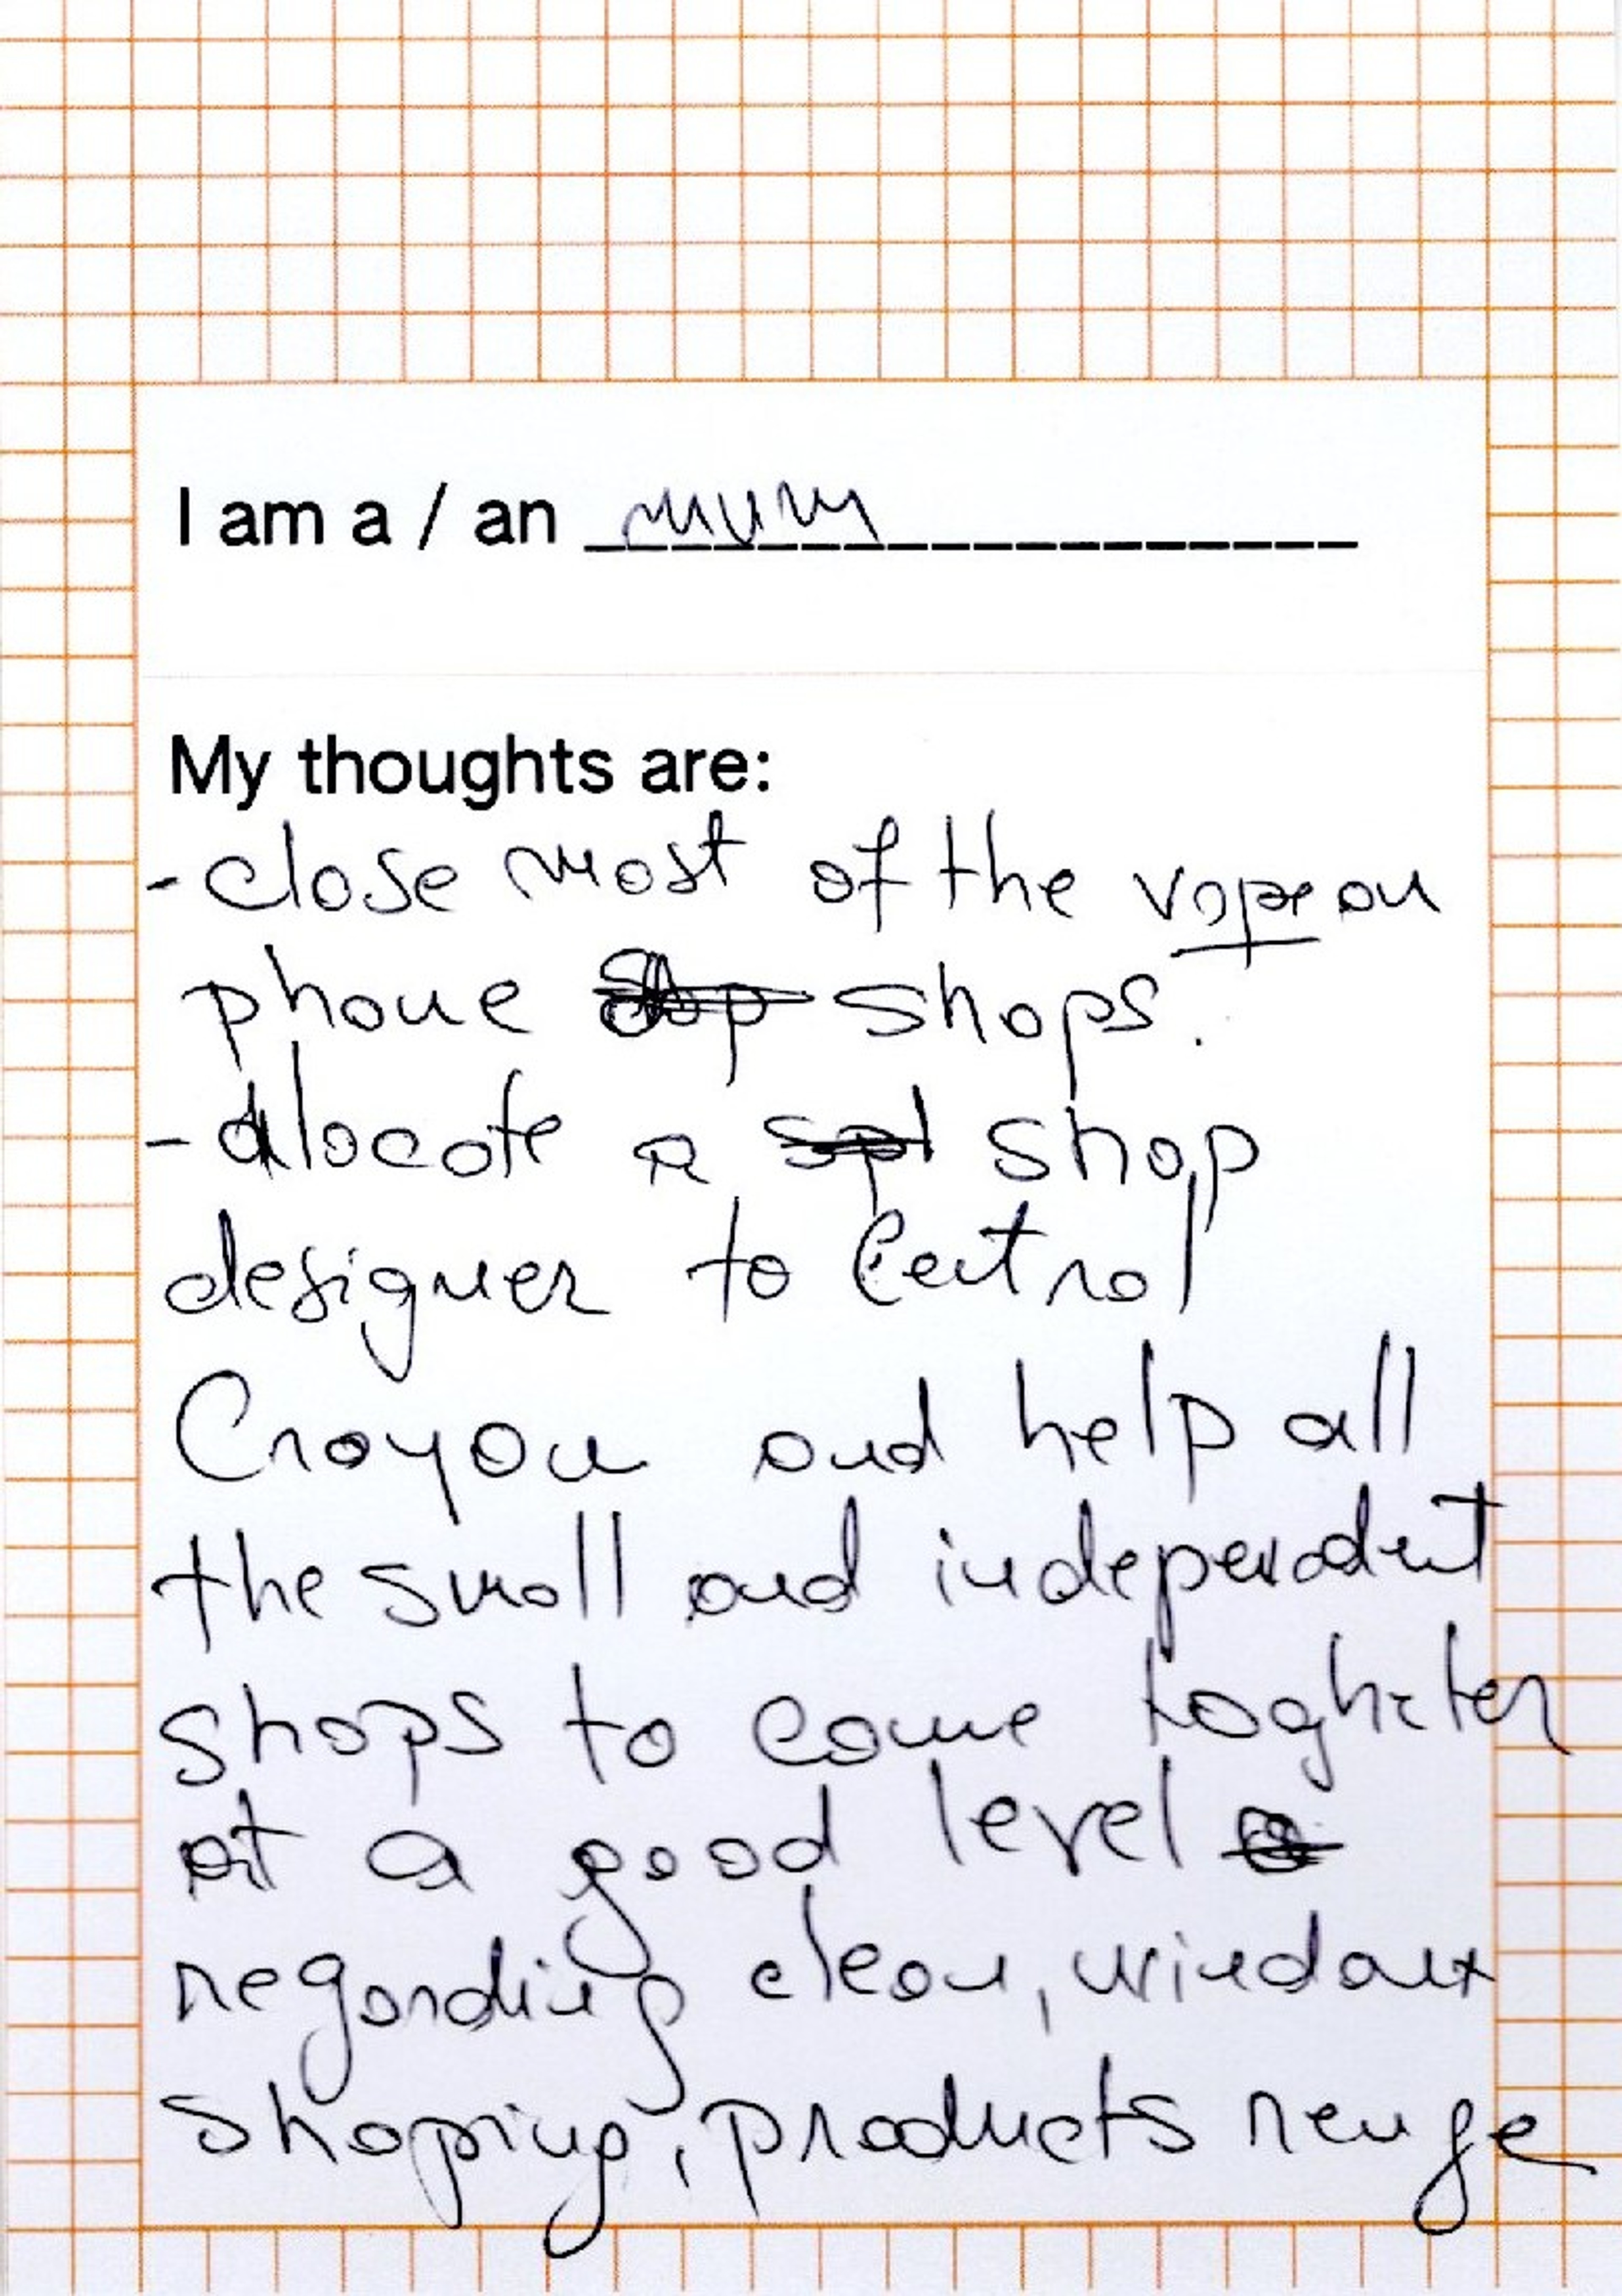 I am a / an mum
My thoughts are:
- close most of the vape on
phone shops.
- alocate a shop
designer to Central
Croyon and help all
the small and independent
shops to come toghter
at a good level
regarding clean, window
shoping, products renge